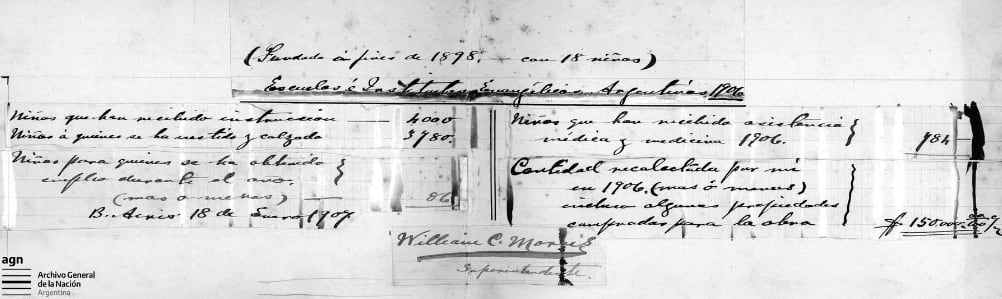 (Fundada á fines de 1898, – con 18 niños)
Escuelas é Institutos Evangélicos Argentinos 1906
Niños que han recibido instruccion — 4000
Niños á quienes se ha vestido y calzado 3780.
Niños para quienes se ha obtenido
empleo durante el año.
(mas ó menos) — 86
B.. Aires 18 de Enero 1907
Niños que han recibido asistencia
médica y medicina 1906. 784
Cantidad recolectada por mi
en 1906. (mas ó menos)
incluso algunas propiedades
compradas para la obra $ 150.000
William C. Morris
Superintendente.
agn
Archivo General
de la Nación
Argentina